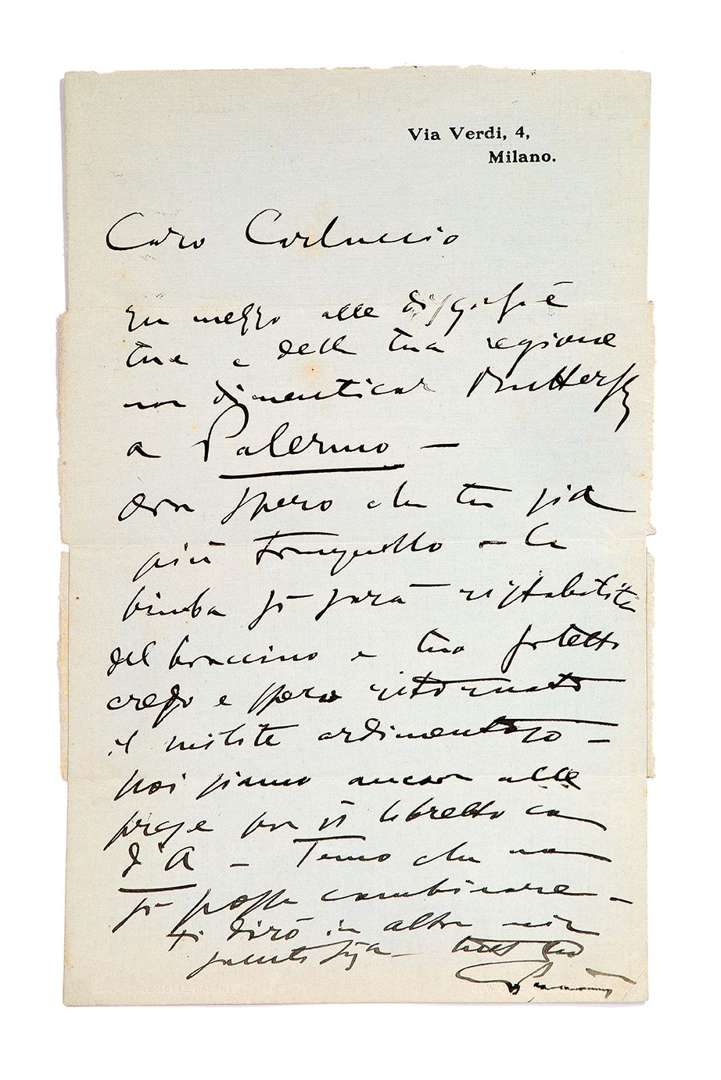 Via Verdi, 4,
Milano.
Caro Carluccio
In mezzo alle disgrazie
tue e della tua regione
non dimenticar Butterfly
a Palermo —
ora spero che tu sia
più tranquillo — la
bimba si sarà ristabilita
del braccino e tuo
credo e spero ritornato
il milite ardimentoso —
noi siamo ancora alle
prese per il libretto con
d'A — Temo che non
si possa combinare —
ti dirò in altra mia
tuo